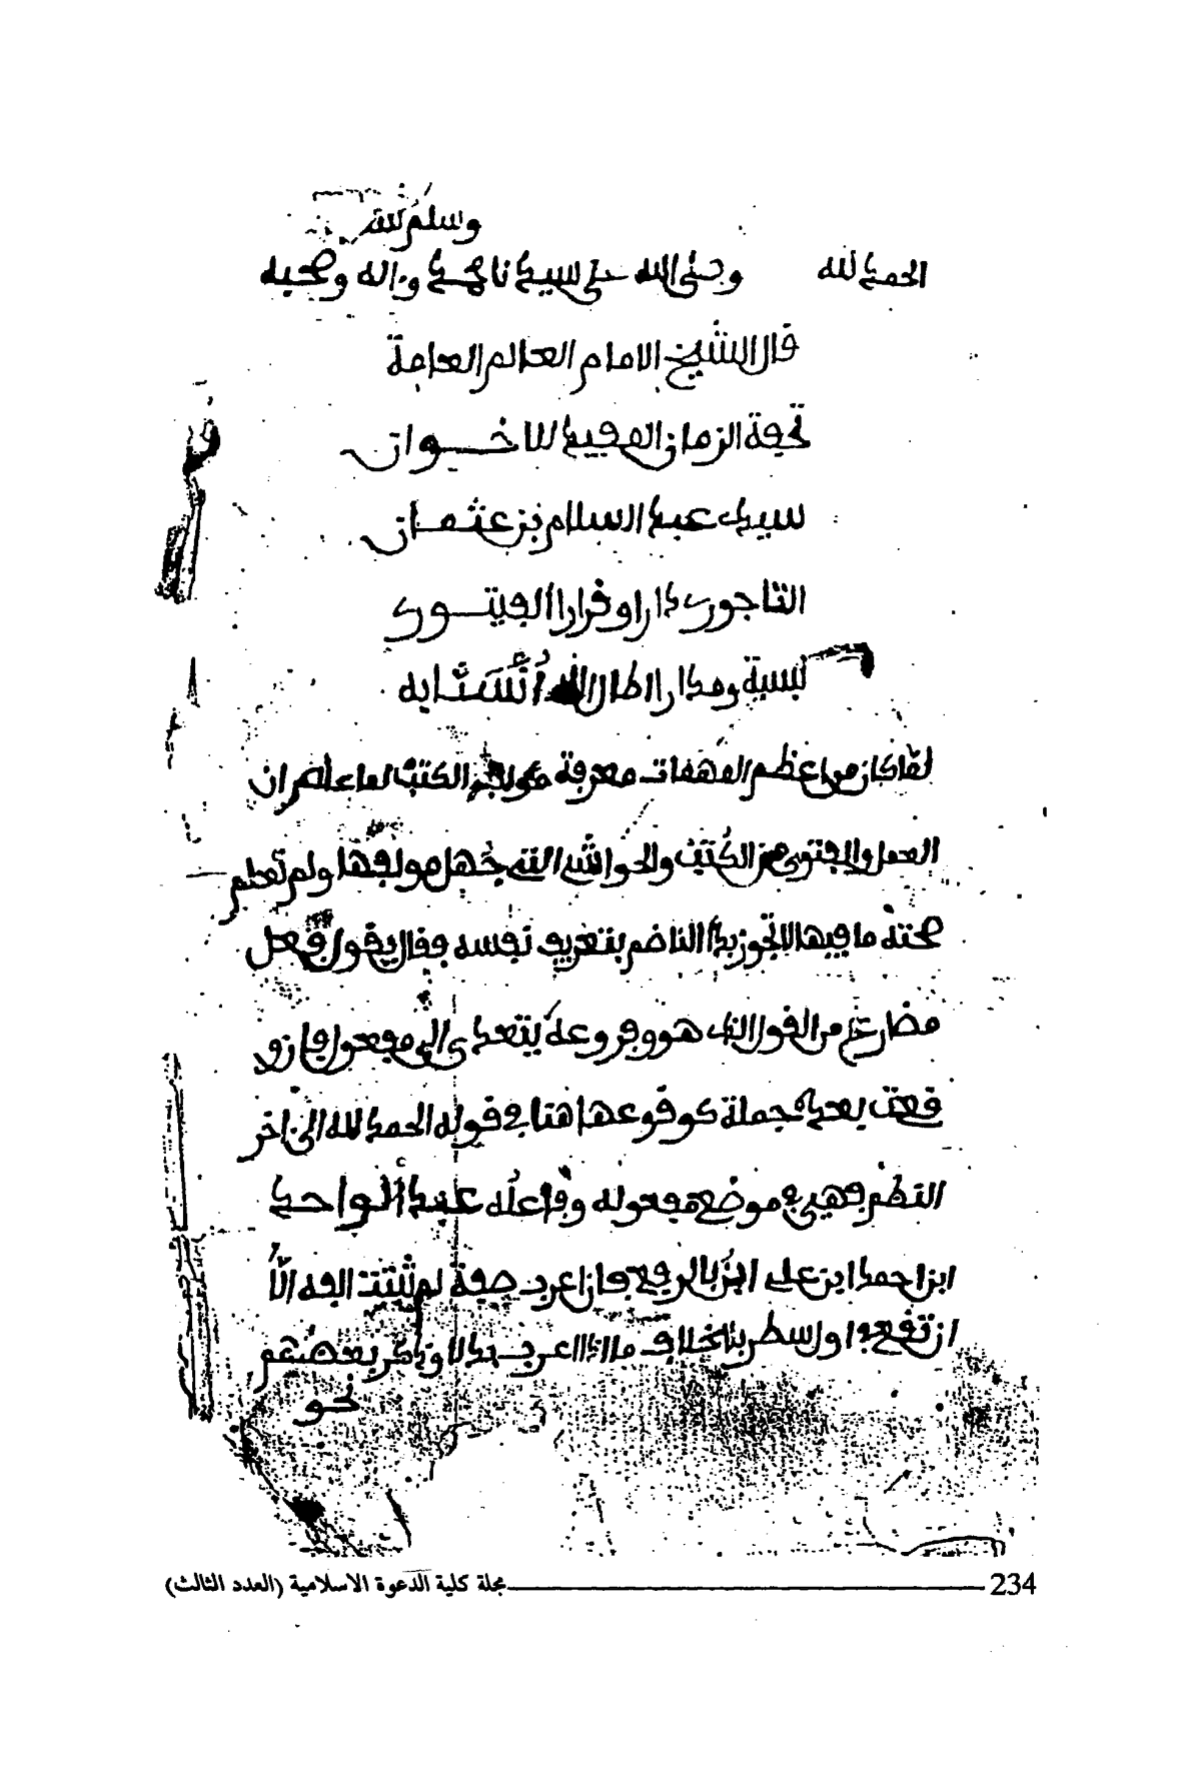 وسلم لله
الحمد لله وصلى الله على سيدنا محمد واله وصحبه
قال الشيخ الامام العالم العلامة
تحفة الزمان المفيد للاخوان
سيدي عبد السلام بن عثمان
التاجوري دارا وقرارا الفيتوري
نسبة ومدارا اطال الله أُنْسَنَا به
لما كان من اعظم المهمات معرفة مولف الكتب لما علم من ان
العمل والفتوى من الكتب والحواشي التي جهل مولفها ولم تعلم
صحته ما فيها لا تجوز بدا الناضم بتعريف نفسه فقال يقول فعل
مضارع من القول الذي هو وفروعه يتعدى الى مفعول فان و
قعت بعده جملة كوقوعها هنا في قوله الحمد لله الى اخر
النظم فهي في موضع مفعوله وفاعله عبد الواحد
ابن احمد ابن علي ابن بالرفع فان اعرب صفة لم تثبت الفه الا
ان تقع في اول سطر بخلاف ما اذا اعرب بدلا وذكر بعضهم
نحو
234 مجلة كلية الدعوة الاسلامية (العدد الثالث)